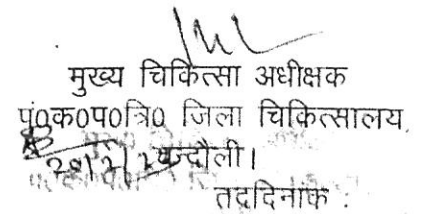 मुख्य चिकित्सा अधीक्षक
पं0क0प0त्रि0 जिला चिकित्सालय
चन्दौली।
तद्दिनांक :